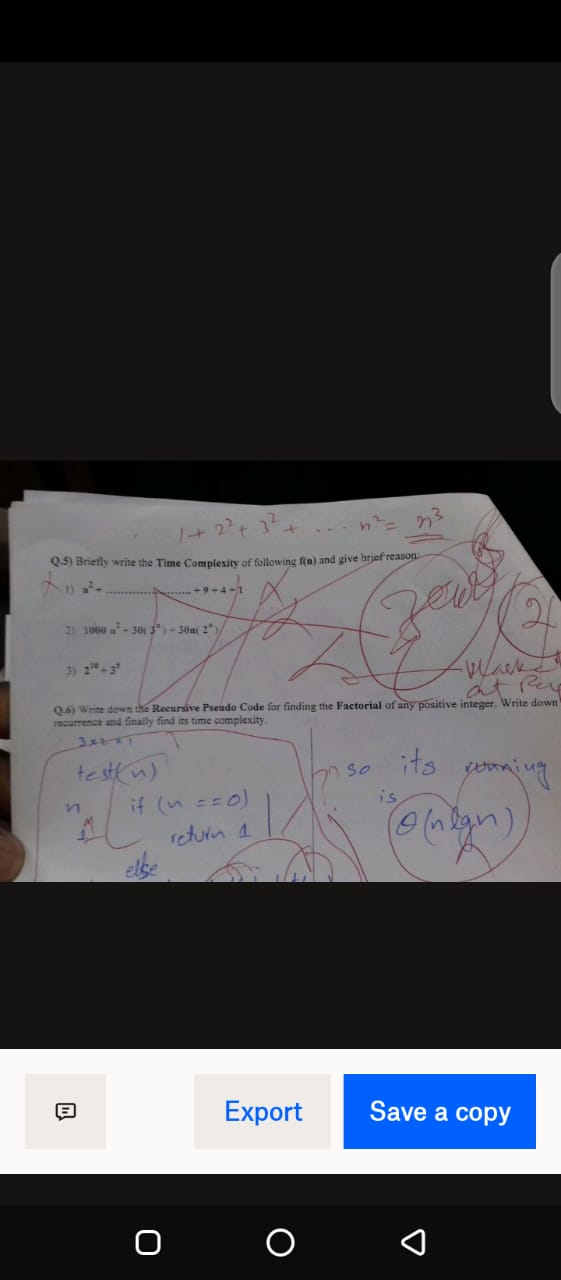 1 + 2² + 3² + ... n² = n³
Q.5) Briefly write the Time Complexity of following f(n) and give brief reason:
1) n² + ........................ + 9 + 4 + 1
2) 1000 n² + 30( 3ⁿ ) + 30n( 2ⁿ )
3) 2¹⁰ + 3⁵
Zero
2
at
Q.6) Write down the Recursive Pseudo Code for finding the Factorial of any positive integer. Write down
recurrence and finally find its time complexity.
3x2x1
test(n)
so its running
n if (n ==0)
is
return 1
θ(nlgn)
else
Export
Save a copy